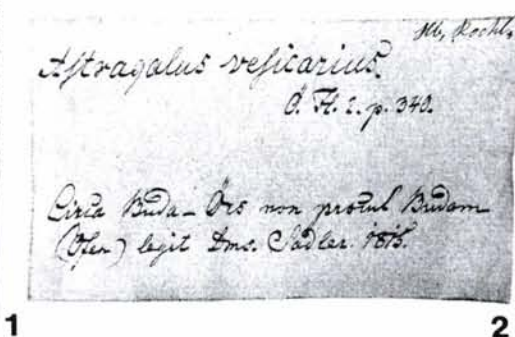 Hb. Rochel.
Aſtragalus veſicarius.
Ö. Fl. 2. p. 340.
Circa Buda-Örs non procul Budam
(Ofen) legit Dms. Sadler. 1815.
1 2